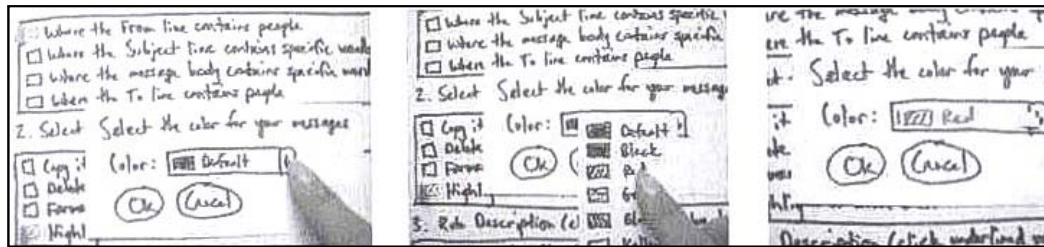 Where the From line contains people
Where the Subject line contains specific words
Where the message body contains specific word
When the To line contains people
2. Select
Select the color for your messages
Copy it
Delete
Forwa
Highl
Color: Default
Ok
Cancel
Where the Subject line contains specific
Where the message body contains specific
When the To line contains people
2. Select
Select the color for your message
Copy it
Delete
Forwa
Highl
Color:
Default
Black
Ok
3. Rule Description (cl
the message body contains
ere the To line contains people
Select the color for your
it
Color: Red
Ok
Cancel
Description (click underlined